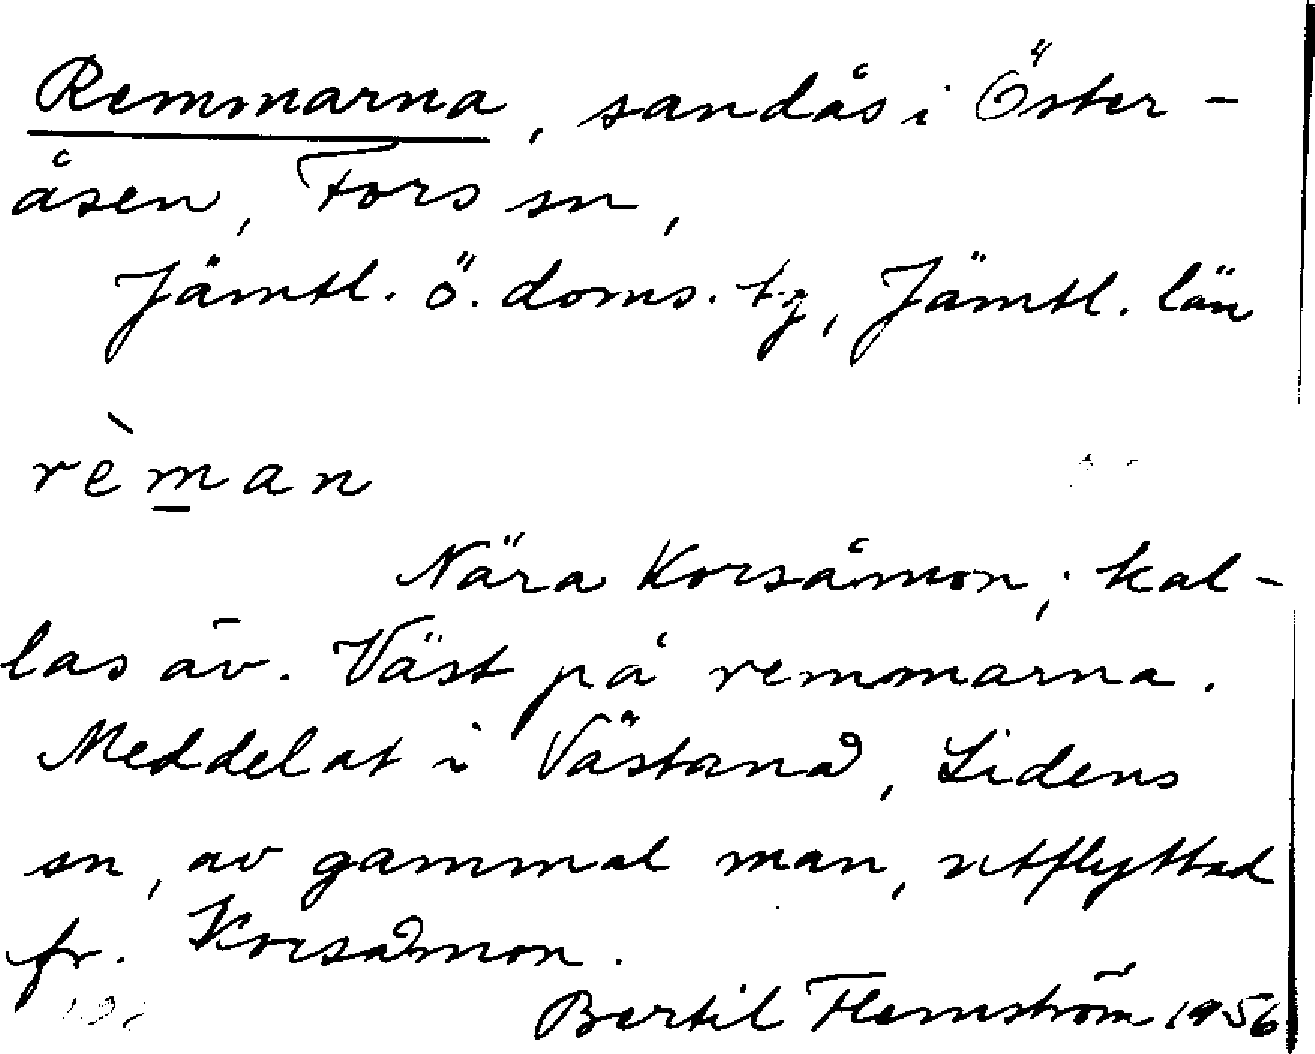 Remmarna, sandås i Öster-
åsen, Fors sn,
Jämtl. ö. doms. tg, Jämtl. län
rèm̲an
Nära Korsåmon; kal-
las äv. Väst på remmarna.
Meddelat i Västanå, Lidens
sn, av gammal man, utflyttad
fr. Korsåmon.
Bertil Flemström 1956